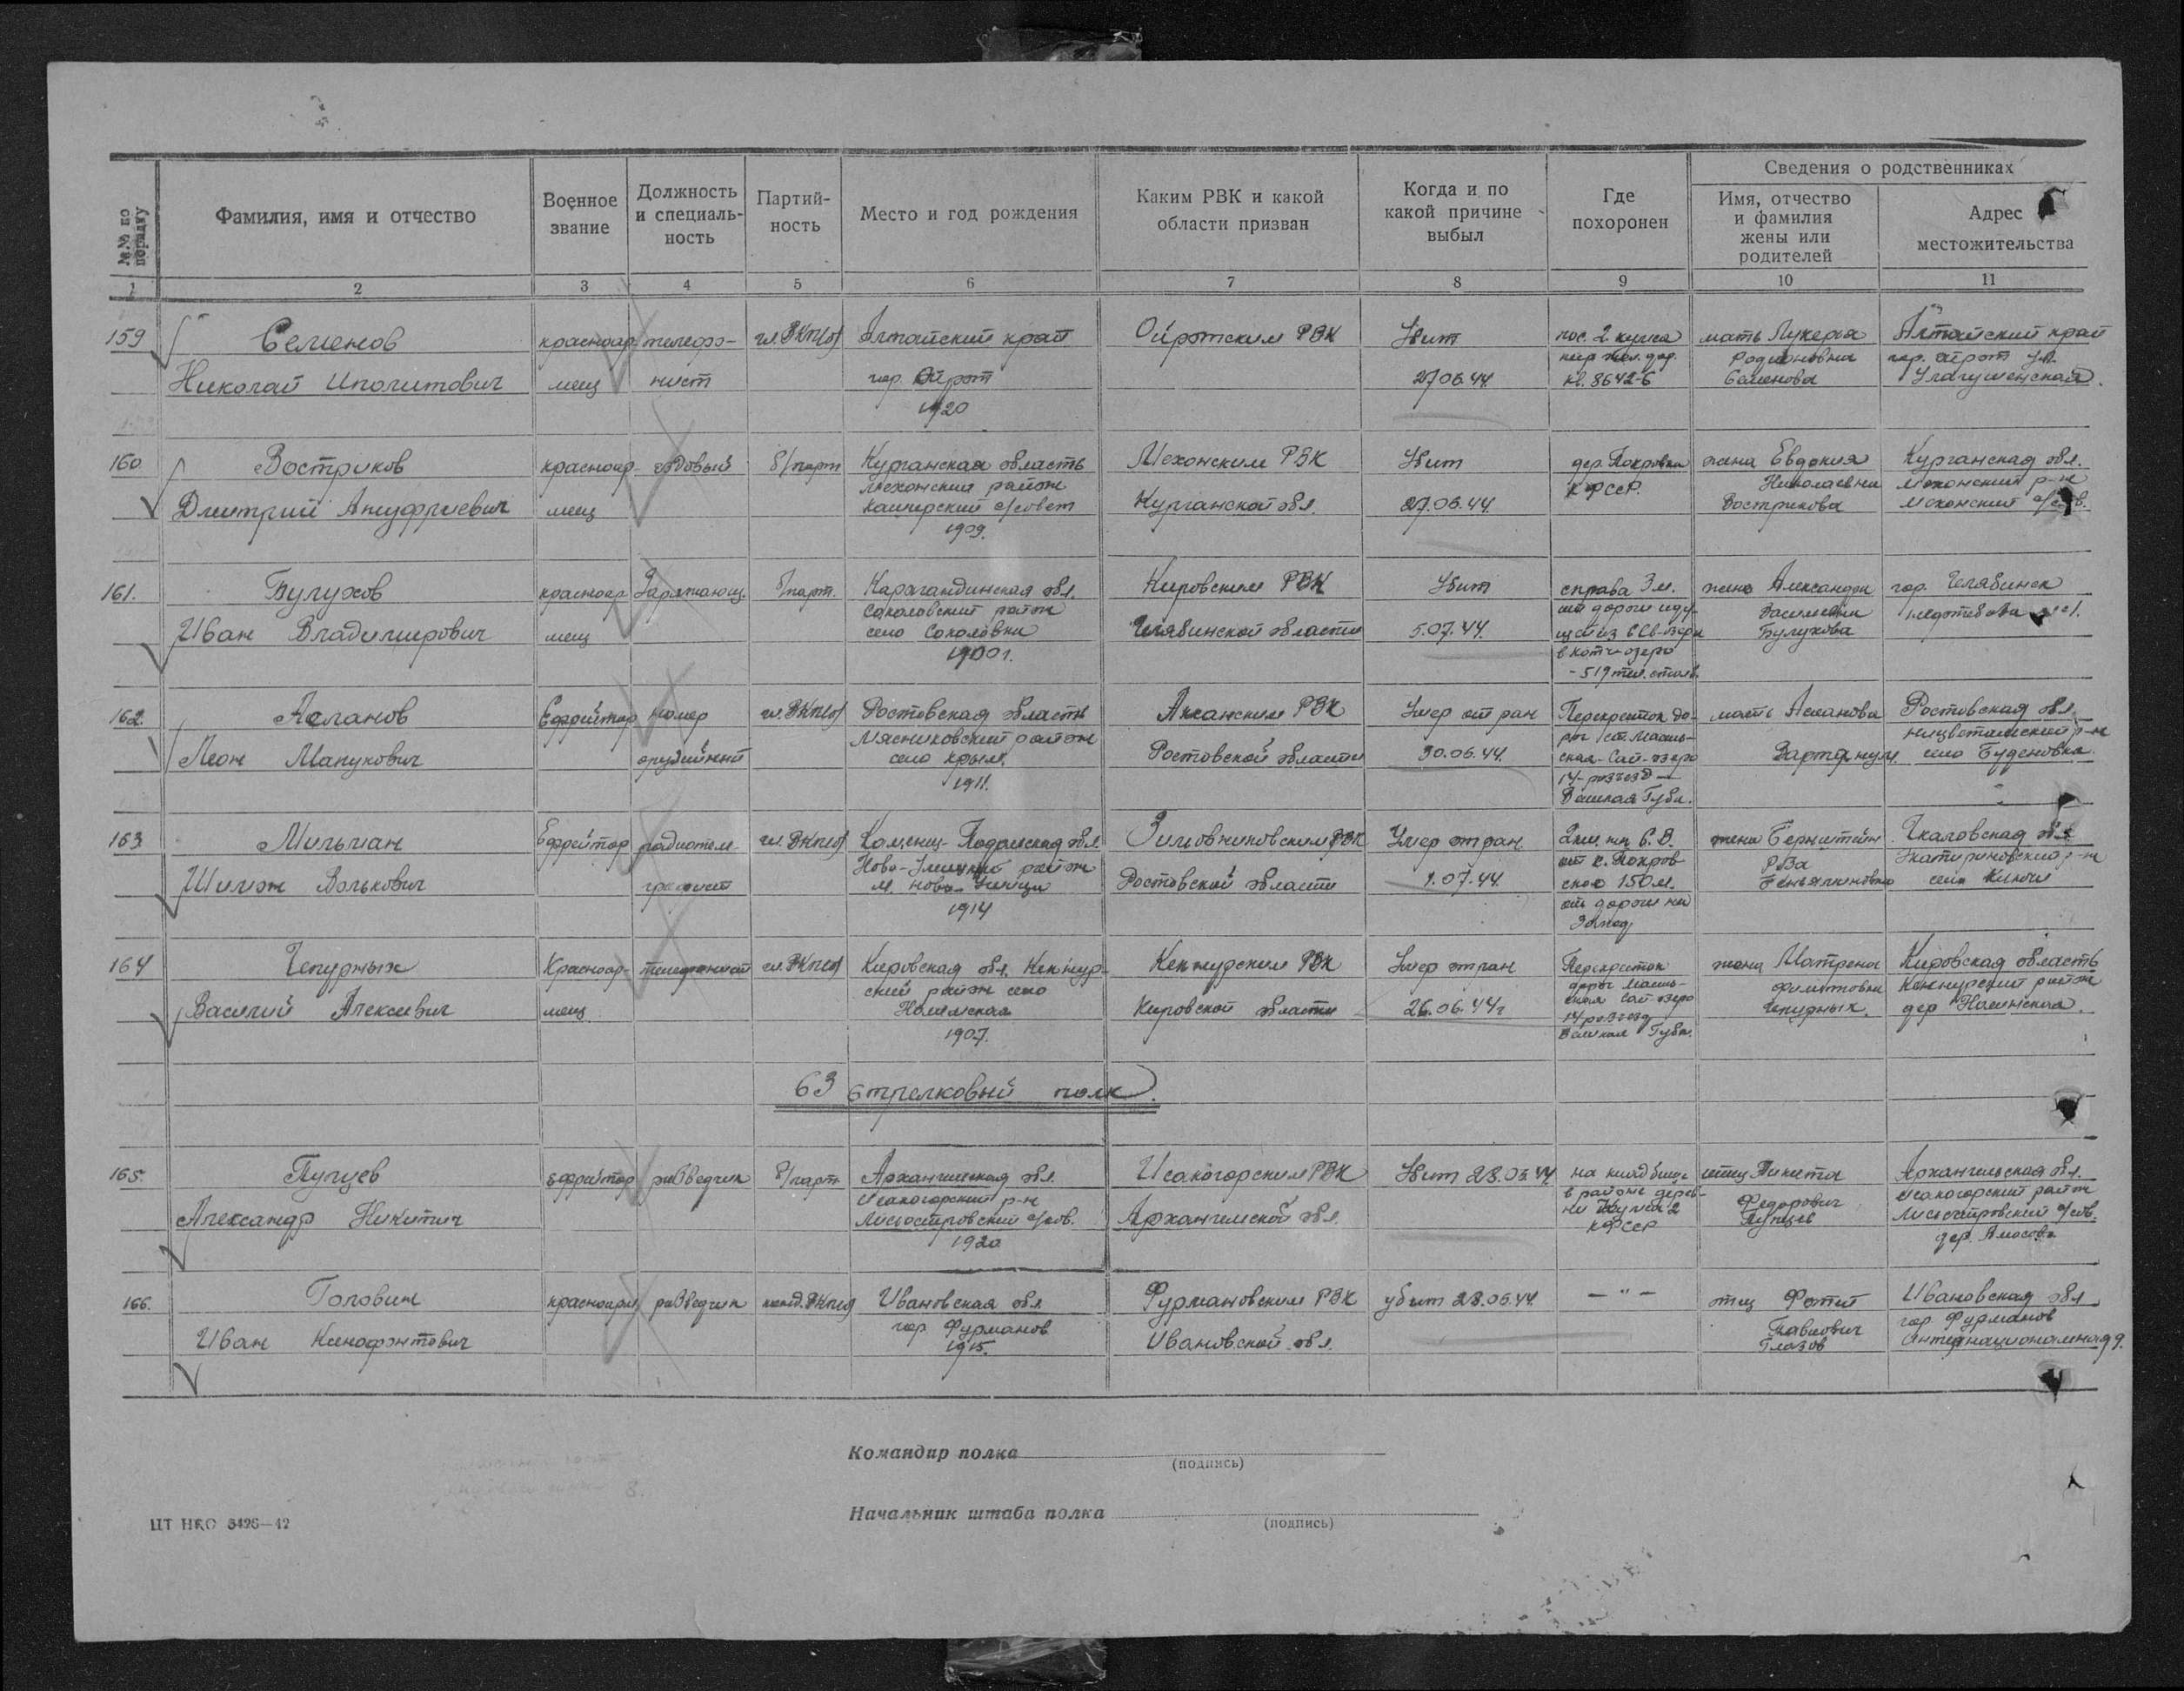 №№ по порядку
Фамилия, имя и отчество
Военное звание
Должность и специаль-ность
Партий-ность
Место и год рождения
Каким РВК и какой области призван
Когда и по какой причине выбыл
Где похоронен
Сведения о родственниках
Имя, отчество и фамилия жены или родителей
Адрес местожительства
1 2 3 4 5 6 7 8 9 10 11
159 Семенов красноар- телефо- чл. ВКП(б) Алтайский край Ойротским РВК Убит пос. 2 кумса мать Лукерья Алтайский край
Родионовна гор. Ойрот ул.
Николай Иполитович меец нист гор. Ойрот 27.06.44. кв. 8642-б Семенова
1920
160 Востриков красноар- ездовый б/парт Курганская область Мехонским РВК Убит дер. Покровка жена Евдокия Курганская обл.
Мехонский район КФССР. Николаевна Мехонский р-н
Дмитрий Ануфриевич меец с/совет Курганской обл. 27.06.44. Вострикова Мехонский с/сов.
1909.
161. Булухов красноар- Заряжающ. б/парт. Карагандинская обл. Кировским РВК Убит справа 3 м. жена Александра гор. Челябинск
Соколовский район от дороги иду- Васильевна
Иван Владимирович меец село Соколовка Челябинской области 5.07.44. Булухова
1900 г. озеро
- 519 тел. столб.
162. Асланов Ефрейтор номер чл. ВКП(б) Ростовская область Аксайским РВК Умер от ран Перекресток до- мать Асланова Ростовская обл.
Мясниковский район рог
Леон Манукович орудийный село Крым. Ростовской области 30.06.44. село Буденовка.
1911. 14-разъезд -
Великая Губа.
163 Мильман Ефрейтор радиотеле- чл. ВКП(б) Каменец-Подольская обл. Зимовниковским РВК Умер от ран 2 км на С.В. жена Бернштейн Чкаловская обл
Ново- район от с. Покров- Роза р-н
Шимон Волькович графист м. Ново- Ростовской области 1.07.44. ское 150 м. село Ключи
1914 от дороги на
Запад
164 Чепурных Красноар- телефонист чл. ВКП(б) Кировская обл. Кикнур- Кикнурским РВК Умер от ран Перекресток жена Матрена Кировская область
ский район село дорог Кикнурский район
Василий Алексеевич меец Кировской области 26.06.44 г Чепурных. дер.
1907. 14 разъезд
Великая Губа.
63 стрелковый полк.
165. Пугцев Ефрейтор разведчик б/парт Архангельская обл. Исакогорским РВК Убит 23.06.44 на кладбище отец Никита Архангельская обл.
Исакогорский р-н в районе дерев- Исакогорский район
Александр Никитич Лисестровский с/сов. Архангельской обл. ни Кумса 2 Федорович Лисестровский с/сов.
1920 КФССР дер. Амосово
166. Головин красноарм. разведчик канд. ВКП(б) Ивановская обл Фурмановским РВК убит 23.06.44. — " — отец Фотий Ивановская обл
гор Фурманов Павлович гор. Фурманов
Иван 1915. Ивановской обл. Глазов Интернациональная 9.
Командир полка
(подпись)
Начальник штаба полка
(подпись)
ЦТ НКО 3426—42